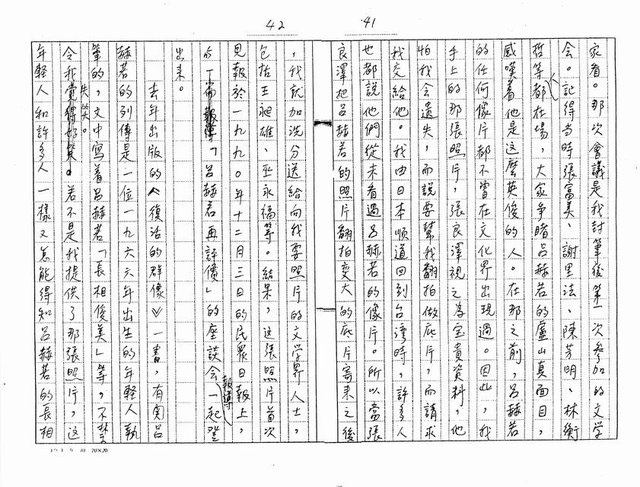 41
家看。那次會議是我討筆後第一次參加的文學
會。記得當時張富美、謝里法、陳芳明、林衡
哲等都在場,大家爭睹呂赫若的廬山真面目,
感嘆著他是這麼英俊的人。在那之前,呂赫若
的任何像片都不曾在文化界出現過。因此,我
手上的那張照片,張良澤視之為寶貴資料,他
怕我會遺失,而說要幫我翻拍做底片,而請求
我交給他。我由日本順道回到台灣時,許多人
也都說他們從未看過呂赫若的像片。所以當張
良澤把呂赫若的照片翻拍變大的底片寄來之後
42
,我就加洗分送給向我要照片的文學界人士,
包括王昶雄、巫永福等。結果,這張照片首次
見報於一九九〇年十二月三日的民眾日報上,
与「呂赫若再評價」的座談會報導一起登
出來。
去年出版的《復活的群像》一書,有關呂
赫若的列傳是一位一九六六年出生的年輕人執
筆的,文中寫着呂赫若「長相俊美」等,不禁
令我失笑。若不是我提供了那張照片,這
年輕人和許多人一樣又怎能得知呂赫若的長相